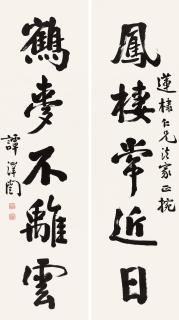 鳳棲常近日
蓮棣仁兄法家正掟
鶴夢不離雲
譚澤闓